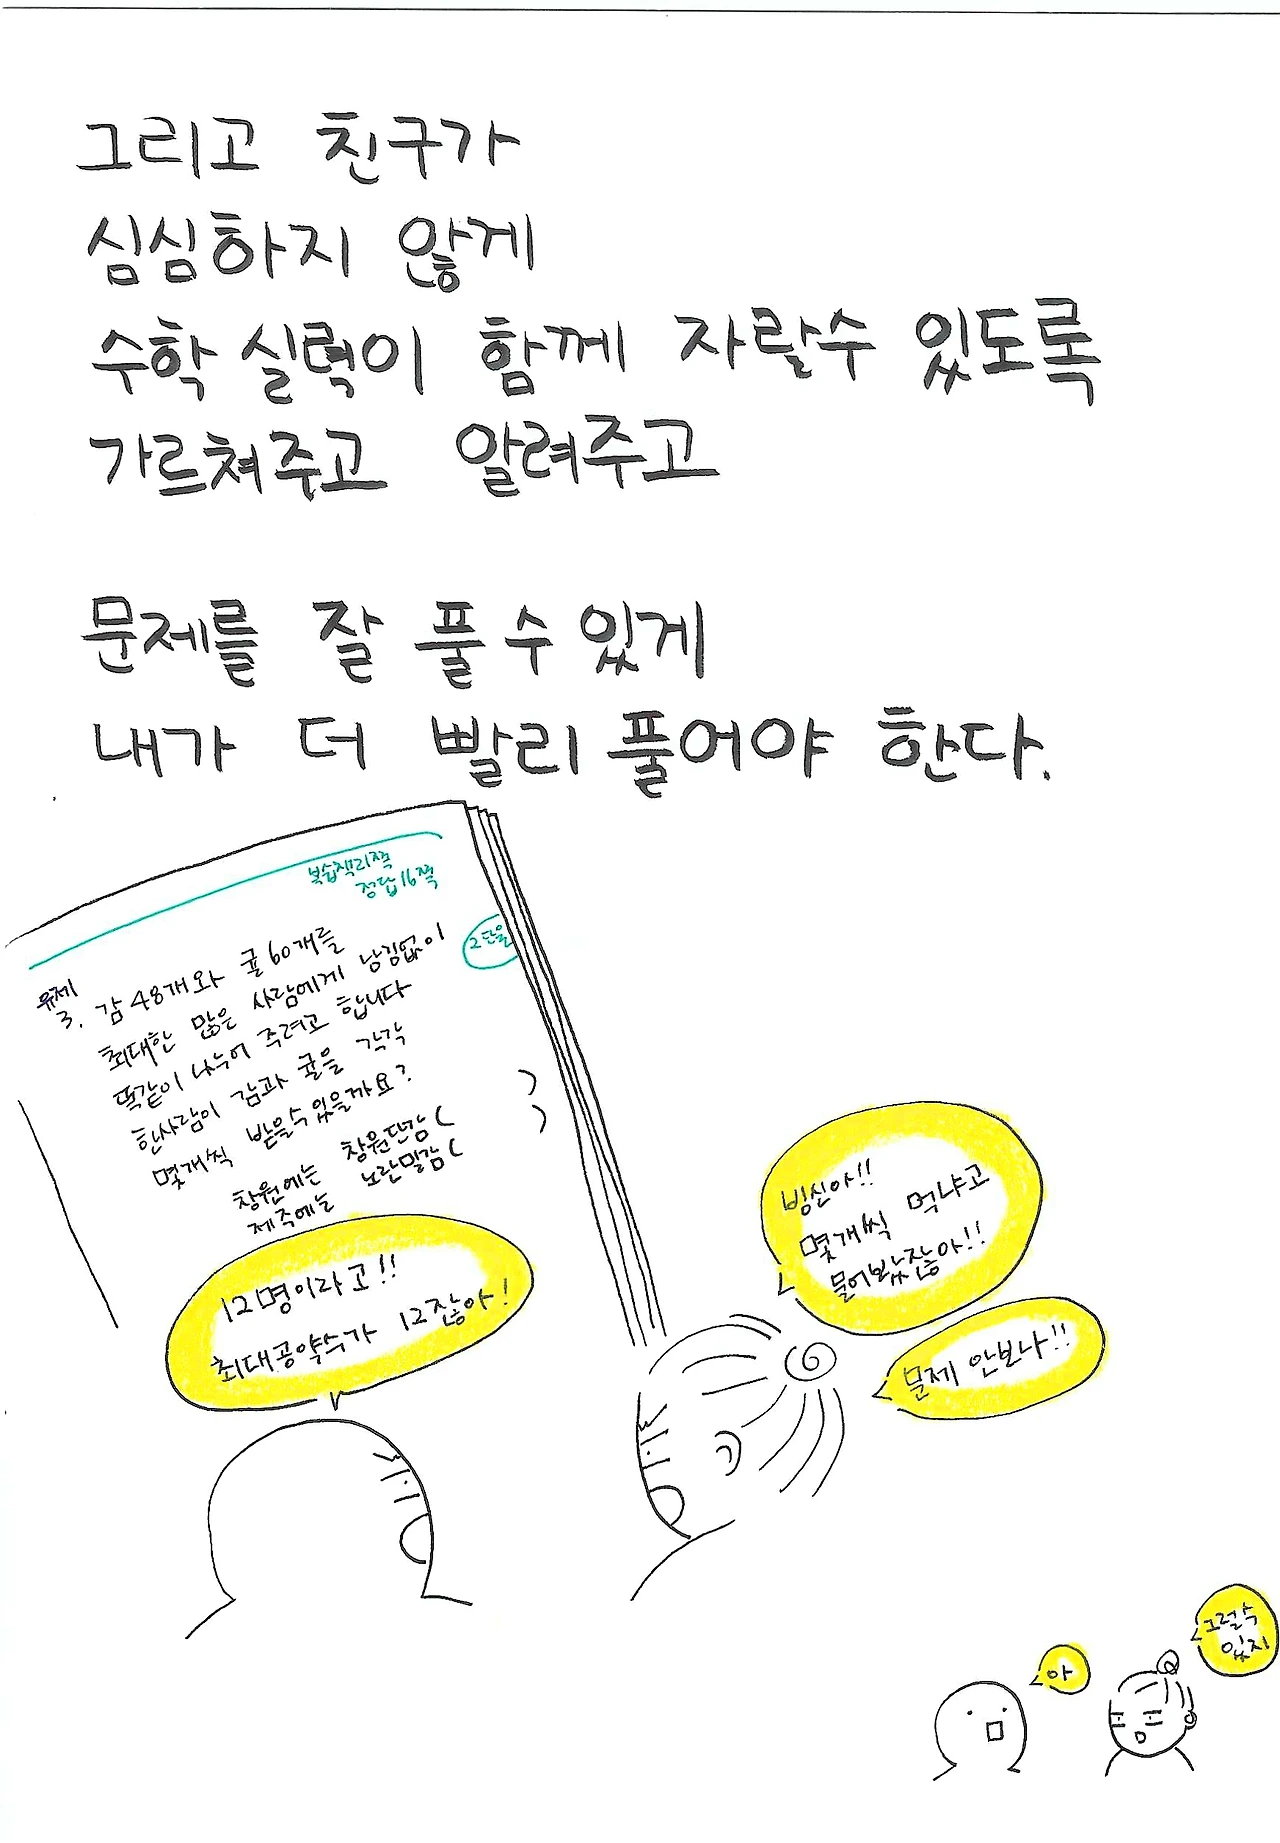 그리고 친구가
심심하지 않게
수학 실력이 함께 자랄수 있도록
가르쳐주고 알려주고
문제를 잘 풀 수 있게
내가 더 빨리 풀어야 한다.
복습책21쪽
정답16쪽
2단원
유제
3. 감 48개와 귤 60개를
최대한 많은 사람에게 남김없이
똑같이 나누어 주려고 합니다
한사람이 감과 귤을 각각
몇개씩 받을수있을까요?
창원에는 창원단감 (
제주에는 노란밀감 (
12명이라고!!
최대공약수가 12잖아!
빙신아!!
몇개씩 먹냐고
물어봤잖아!!
문제 안보나!!
아
그럴수
있지